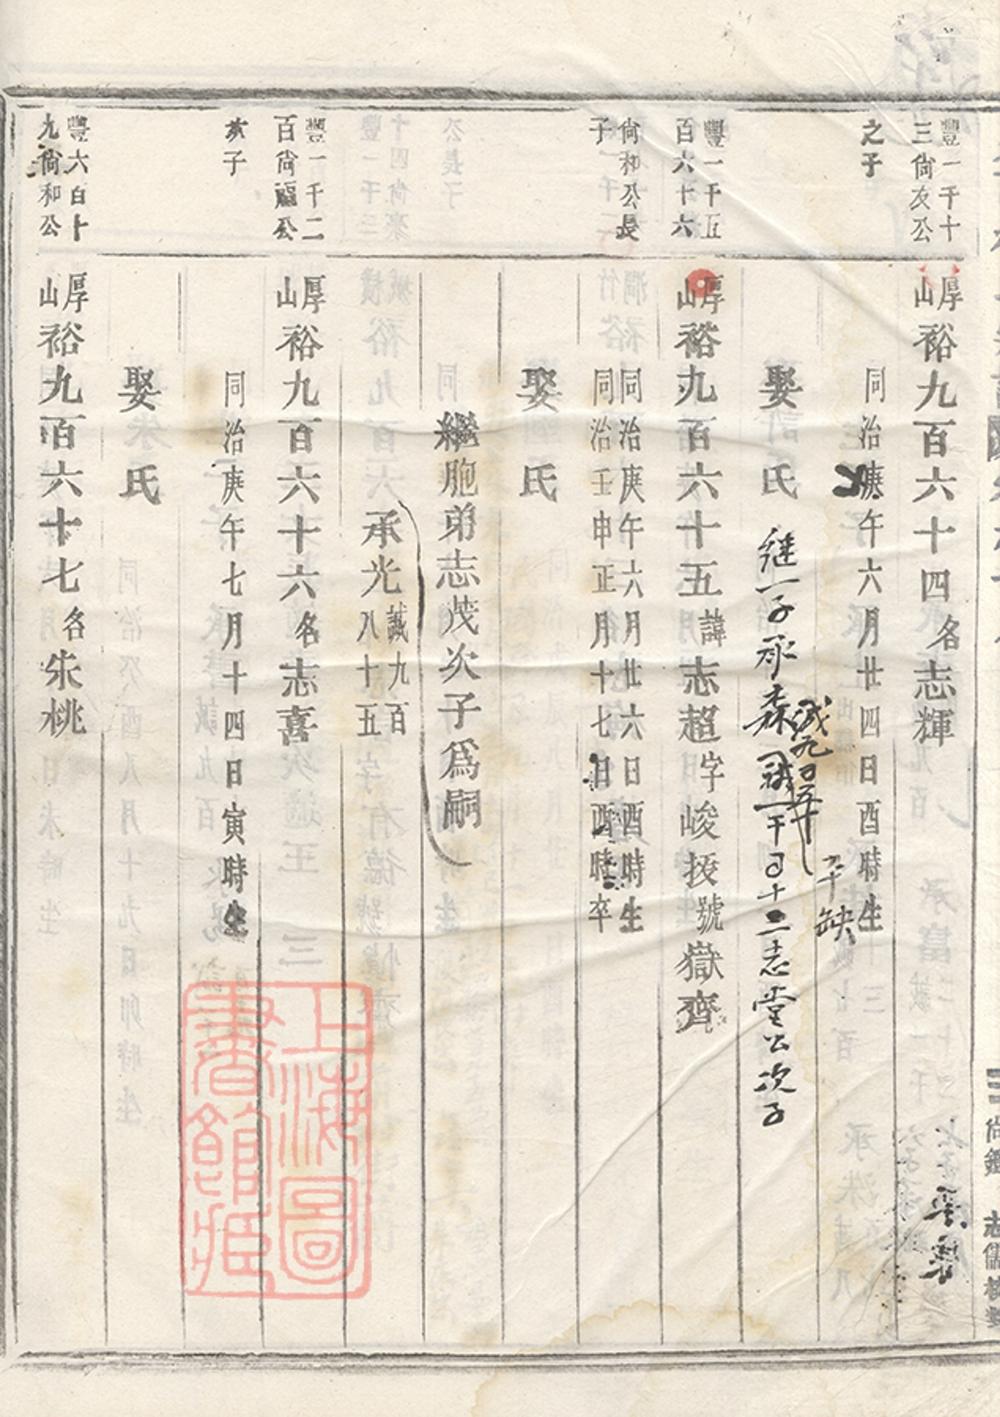 豐一千十
三尙友公
之子
厚山裕九百六十四名志輝
同治庚午六月廿四日酉時生
卒缺
娶氏
继一子承森
诚一千百十二志堂公次子
豐一千五
百六十六
尙和公長
子
厚山裕九百六十五諱志超字峻㧞號嶽齊
同治庚午六月廿六日酉時生
同治壬申正月十七日酉時卒
娶氏
繼胞弟志茂次子爲嗣
承光誠九百八十五
豐一千二
百尙龍公
亥子
厚山裕九百六十六名志喜
同治庚午七月十四日寅時生
娶氏
豐六百十
九尙和公
厚山裕九百六十七名朱桃
上海圖書館藏